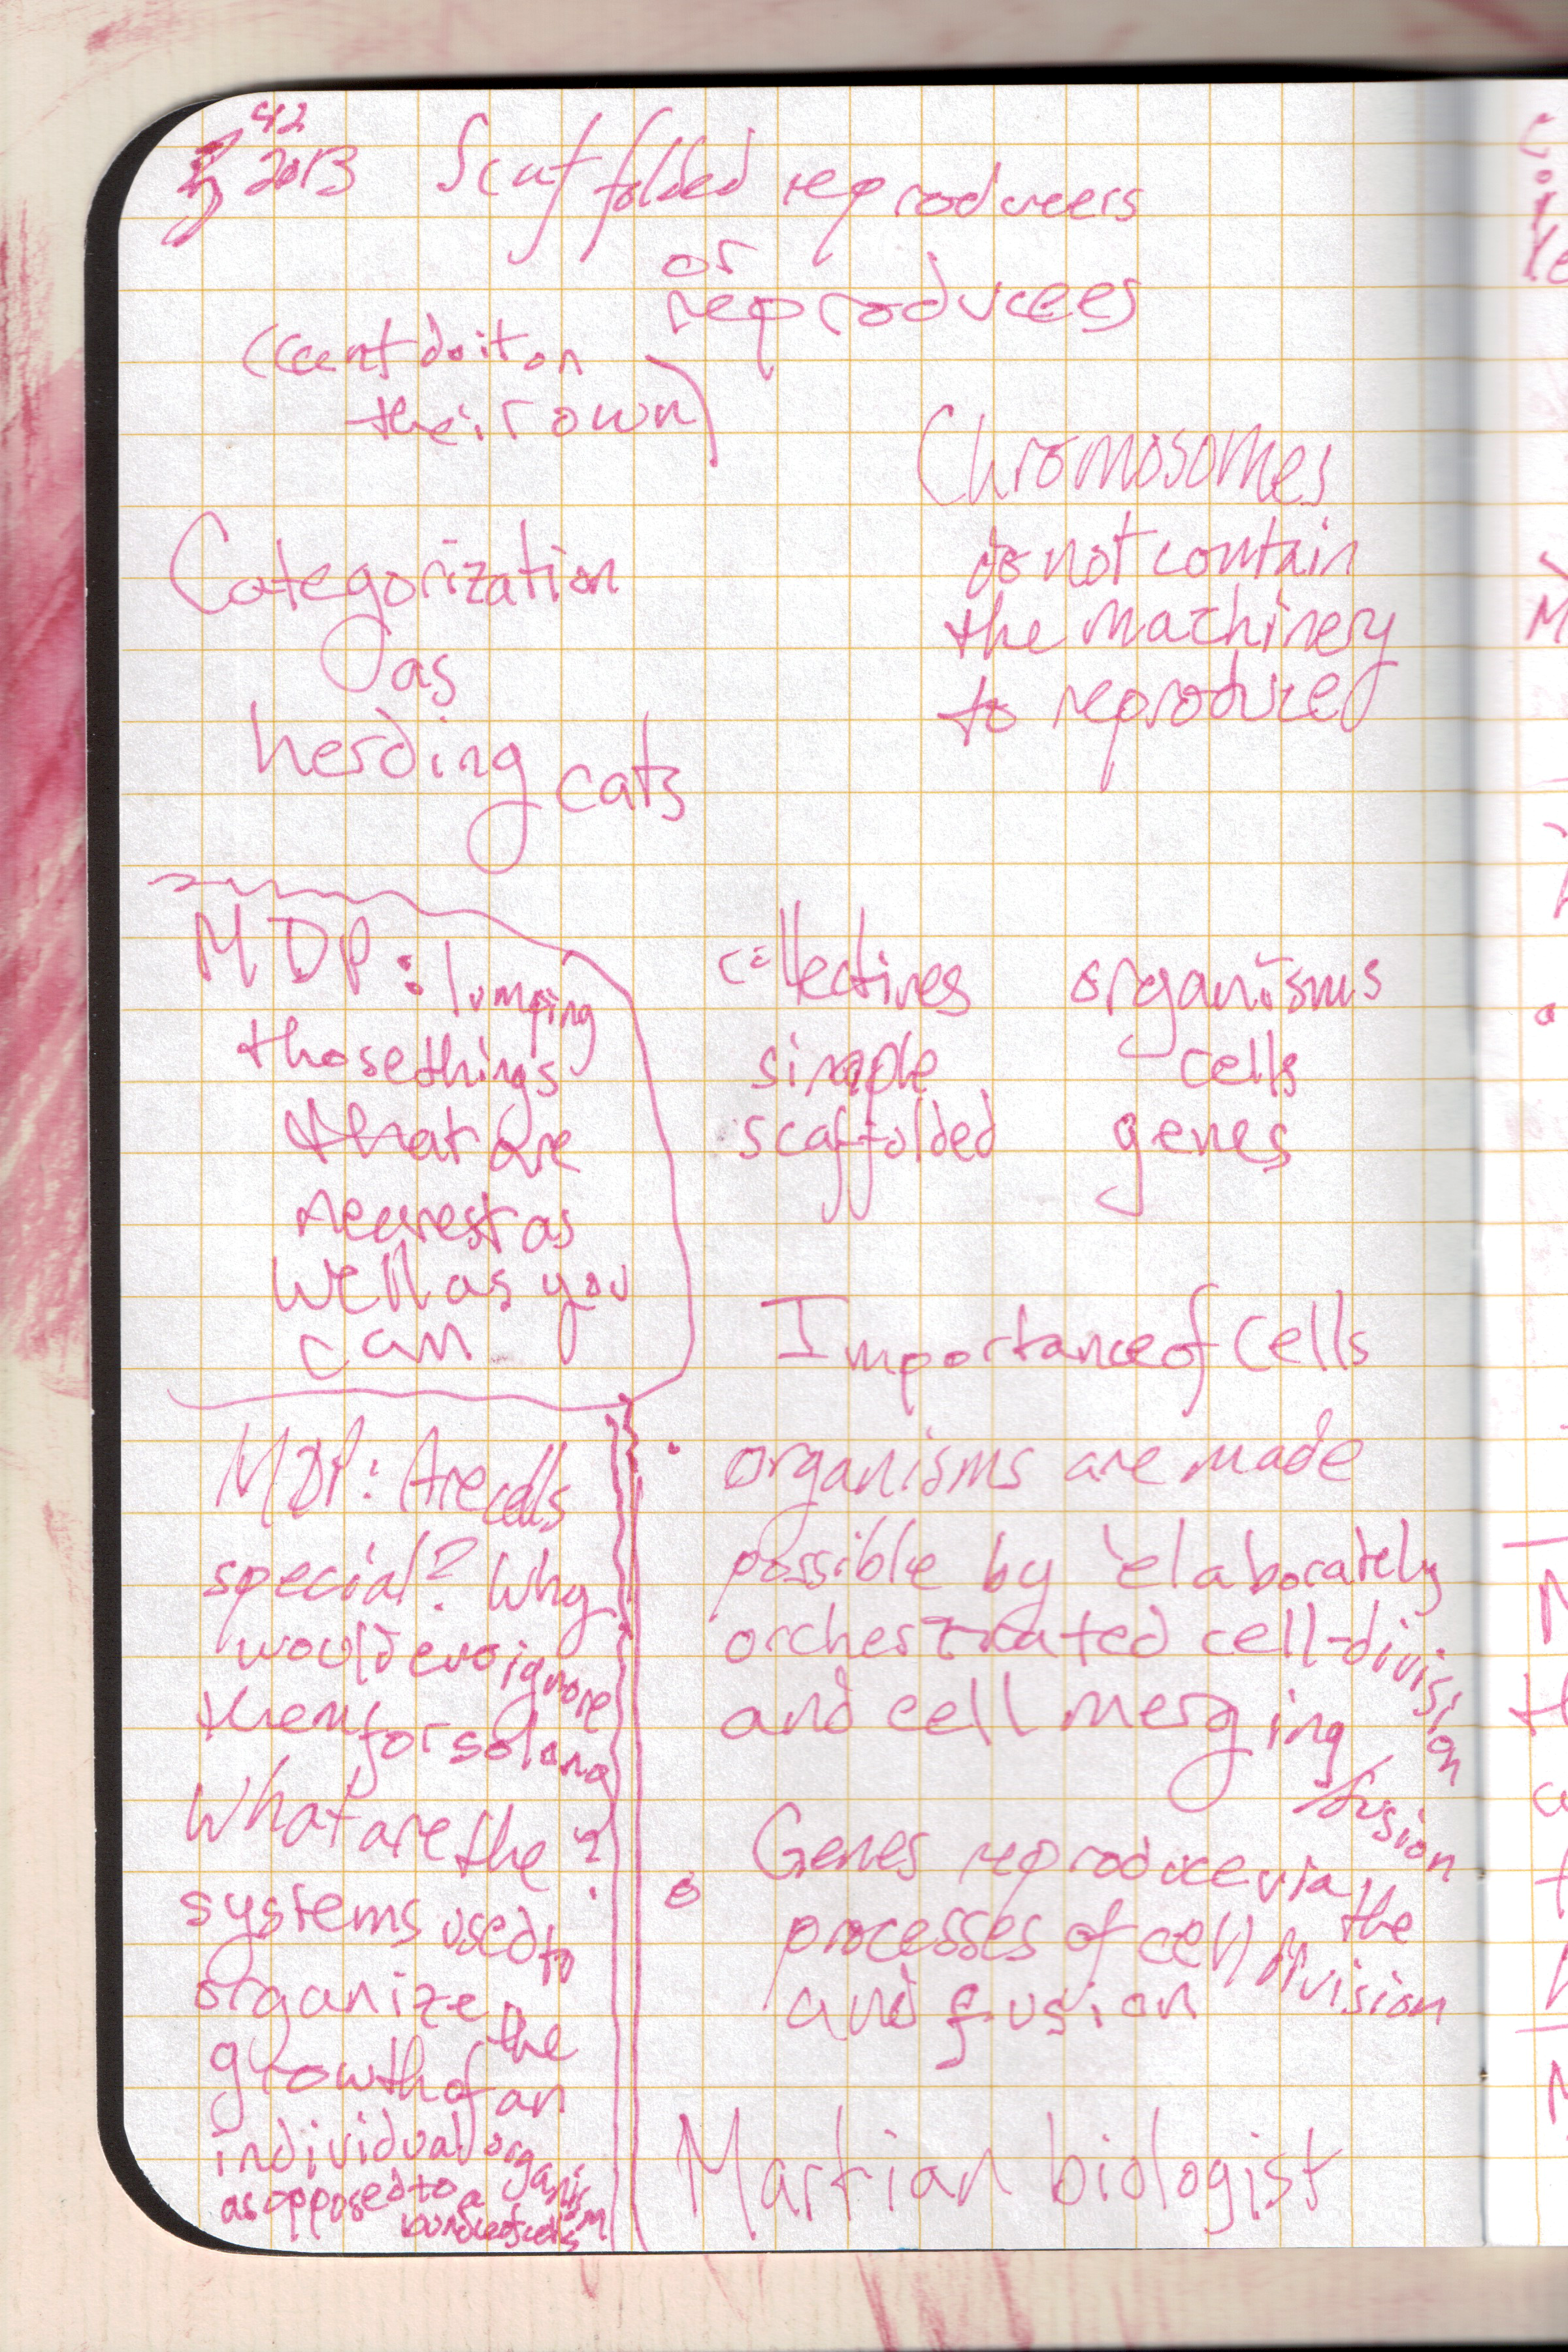 42
2013 Scaffolded reproducers
or
reproducees
(can't do it on
their own)
Chromosomes
do not contain
the machinery
to reproduce
Categorization
as
herding cats
MDP: lumping
those things
that are
nearest as
well as you
can
collectives organisms
simple cells
scaffolded genes
Importance of Cells
• organisms are made
possible by elaborately
orchestrated cell-division
and cell merging
/fusion
• Genes reproduce via the
processes of cell division
and fusion
Martian biologist
MDP: Are cells
special? Why
would evo ignore
them for so long
?
What are the
systems used to
organize the
growth of an
individual organism
as opposed to a
bundle of cells